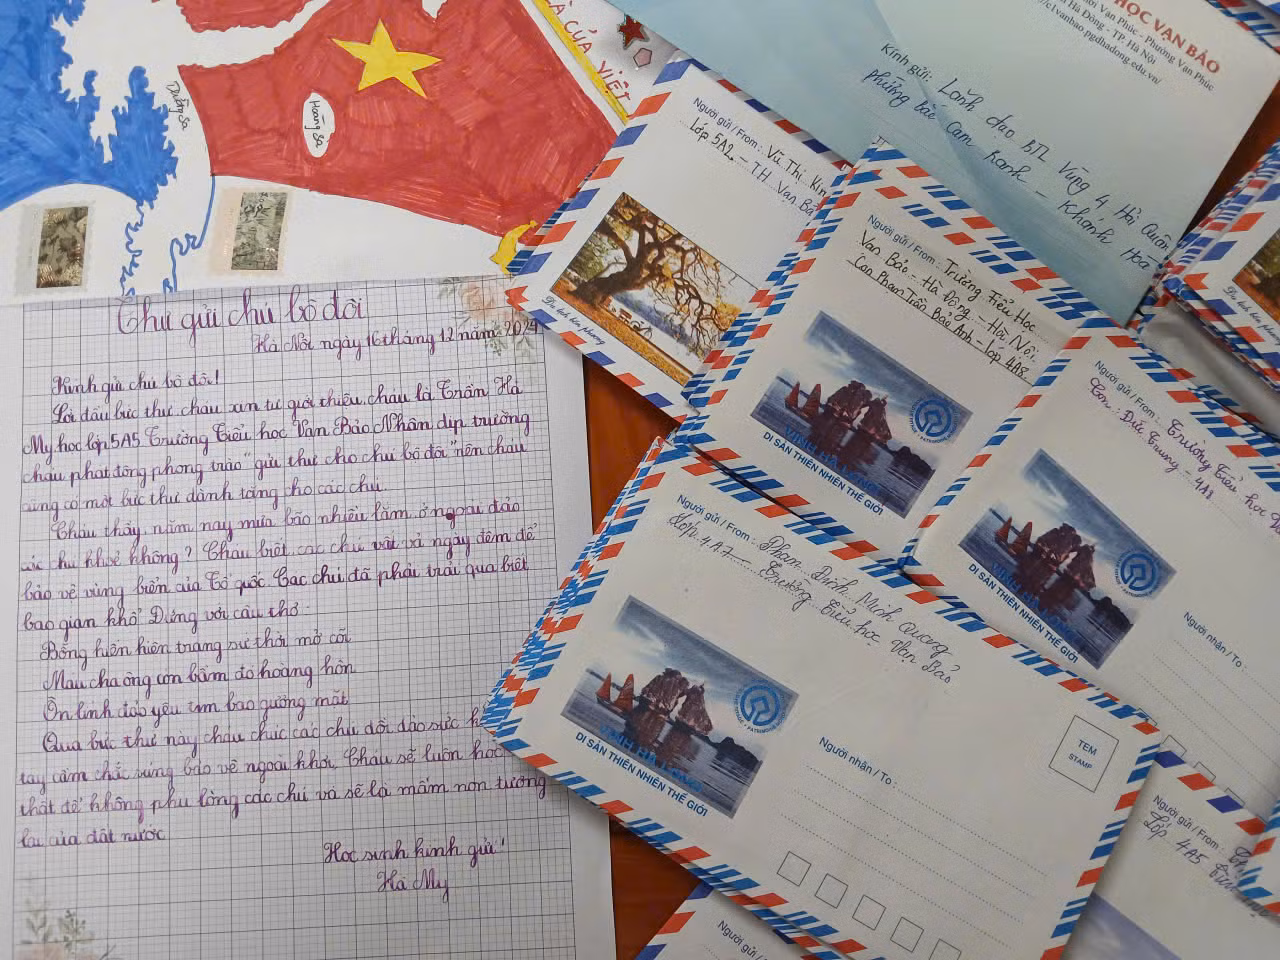 À CỦA VIỆT
Trường Sa
Hoàng Sa
Thư gửi chú bộ đội
Hà Nội ngày 16 tháng 12 năm 2024
Kính gửi chú bộ đội!
Lời đầu bức thư cháu xin tự giới thiệu, cháu là Trần Hà
My học lớp 5A5 Trường Tiểu học Vạn Bảo. Nhân dịp trường
cháu phát động phong trào "gửi thư cho chú bộ đội" nên cháu
cũng có một bức thư dành tặng cho các chú
Cháu thấy năm nay mưa bão nhiều lắm, ở ngoài đảo
các chú khoẻ không? Cháu biết các chú vất vả ngày đêm để
bảo vệ vùng biển của Tổ quốc. Các chú đã phải trải qua biết
bao gian khổ. Đúng với câu thơ
Bổng hiên hiên trang sử thời mở cõi
Máu cha ông còn bầm đỏ hoàng hôn
Ôn linh đảo yêu tim bao gương mặt
Qua bức thư này cháu chúc các chú dồi dào sức
tay cầm chắc súng bảo vệ ngoài khơi. Cháu sẽ luôn học
thật để không phụ lòng các chú và sẽ là mầm non tương
lai của đất nước
Học sinh kính gửi!
Hà My
HỌC VẠN BẢO
Vạn Phúc - Phường Vạn Phúc
Hà Đông - TP. Hà Nội
c1vanbao.pgdhadong.edu.vn/
Kính gửi: Lãnh đạo BTL Vùng 4 Hải Quân
phường bắc Cam Ranh - Khánh Hoà
Người gửi / From: Vũ Thị Kim
Lớp 5A2 - T.H Vạn Bả
Người gửi / From: Trường Tiểu Học
Vạn Bảo - Hà Đông - Hà Nội
Con Phạm Trần Bảo Anh - lớp 4A8
VỊNH HẠ LONG
DI SẢN THIÊN NHIÊN THẾ GIỚI
Người gửi / From: Trường Tiểu học
Con: Đức Trung - 4A8
VỊNH HẠ LONG
DI SẢN THIÊN NHIÊN THẾ GIỚI
Người nhận / To:
Người gửi / From: Phạm Đình Minh Quang
Lớp 4A7 - Trường Tiểu học Vạn Bảo
VỊNH HẠ LONG
DI SẢN THIÊN NHIÊN THẾ GIỚI
Người nhận / To:
TEM
STAMP
Người gửi / From:
Lớp 4A5
Người gửi / From